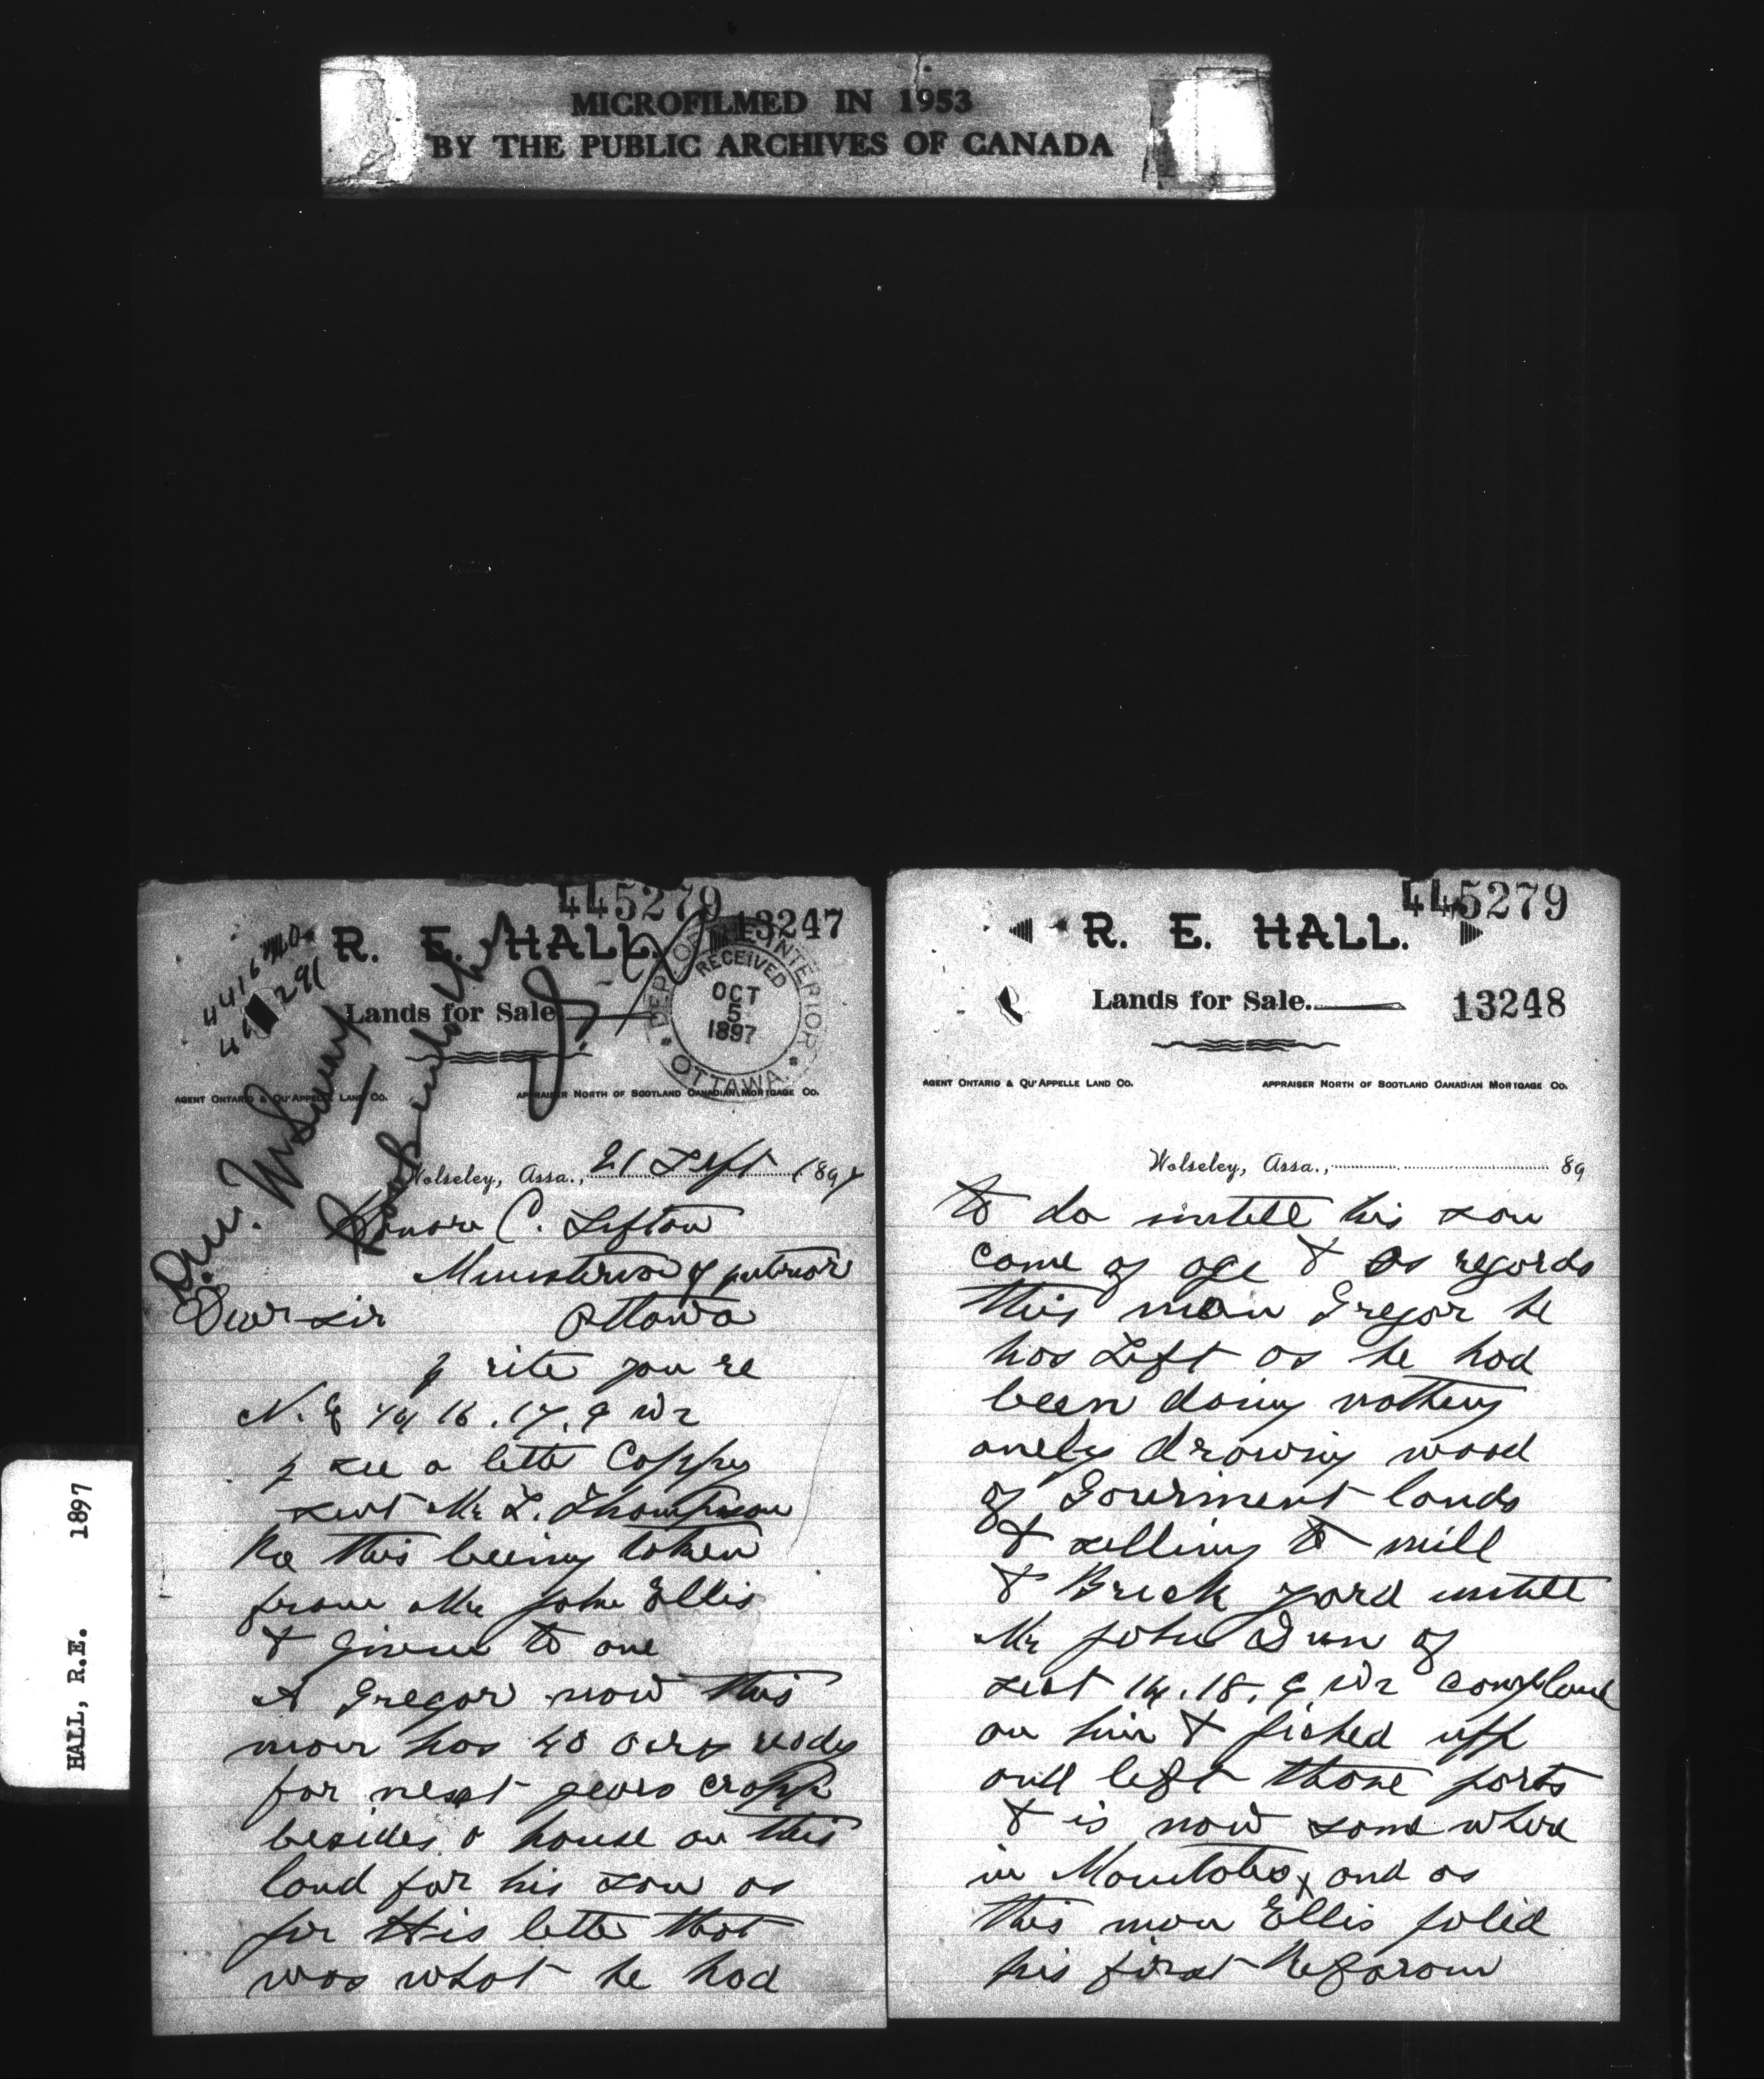 MICROFILMED IN 1953
BY THE PUBLIC ARCHIVES OF CANADA
HALL, R.E. 1897
445279
13247
R. E. HALL.
Lands for Sale
DEPT OF THE INTERIOR
RECEIVED
OCT
5
1897
OTTAWA
AGENT ONTARIO & QU'APPELLE LAND CO.
APPRAISER NORTH OF SCOTLAND CANADIAN MORTGAGE CO.
Wolseley, Assa., 21 Sept 1897
Honore C. Sifton
of interior
Dear sir Ottawa
I rite you re
N. E 1/4 16. 17. 9 W2
I see a letter Coppy
sent Mr L. Thompson
Re this being taken
from Mr John Ellis
& given to one
A Gregor now this
man has 40 acrs redy
for next years cropp
besides a house on this
land for his son as
for this letter that
was what he had
445279
R. E. HALL.
Lands for Sale.
13248
AGENT ONTARIO & QU'APPELLE LAND CO.
APPRAISER NORTH OF SCOTLAND CANADIAN MORTGAGE CO.
Wolseley, Assa., 89
to do untill his son
come of age & as regards
this man Gregor he
has Left as he had
been doing nothing
onely drawing wood
of Gouriment lands
& selling to mill
& Brick yard untill
Mr John Dun of
sect 14. 18. 9 W2
on him & picked upp
and left those parts
& is now some where
in Manitoba, and as
this man Ellis
his first